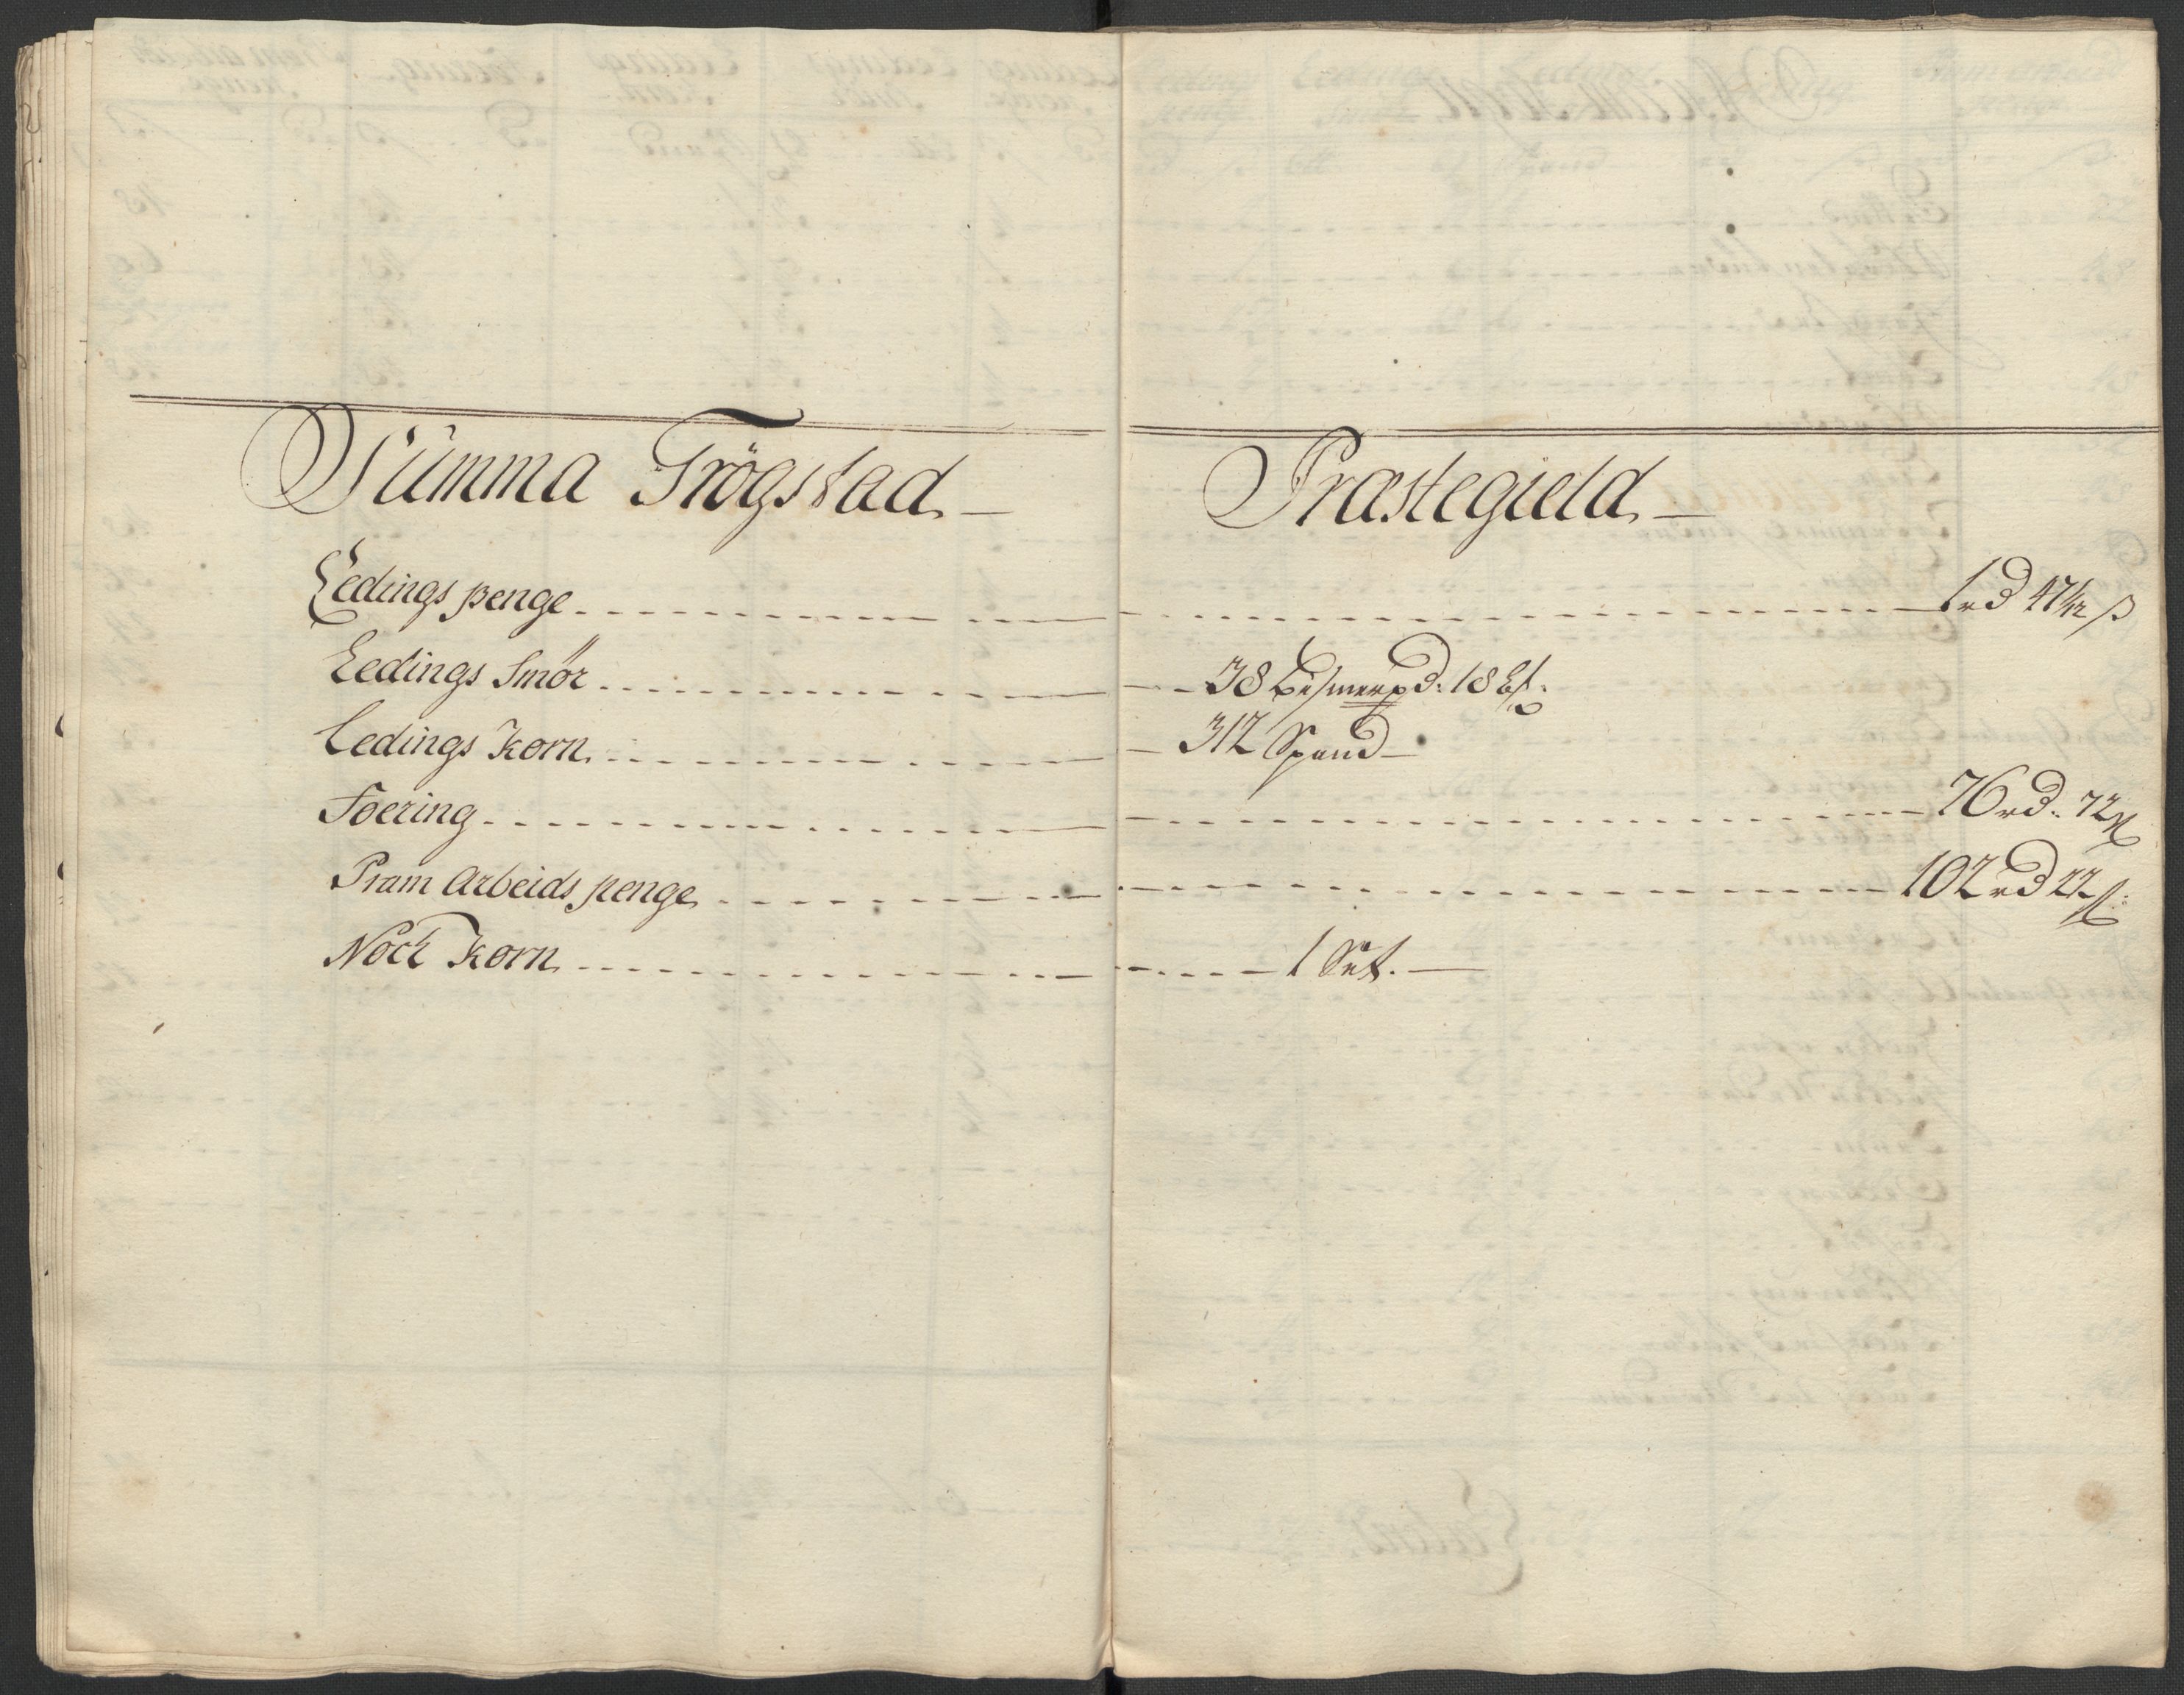 Summa Trögstad Præstegield
Ledings penge 1 rd 47½ ß
Ledings Smör 38 bismerpd: 18
Ledings Korn 312 Spand
Foering 76 rd: 72
Pram Arbeids penge 102 rd 22 ß
Noch Korn 1 Set.